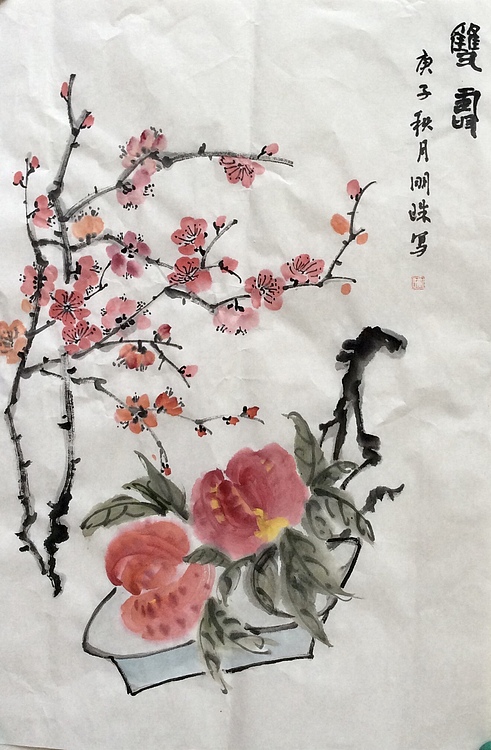 雙壽
庚子秋月明珠写